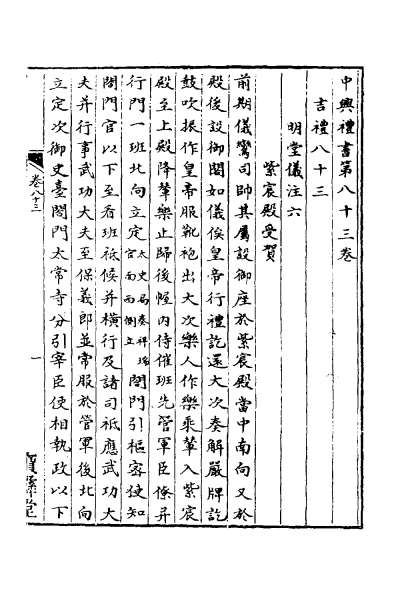 中興禮書第八十三卷
吉禮八十三
明堂儀注六
紫宸殿受賀
前期儀鸞司帥其屬設御座於紫宸殿當中南向又於
殿後設御閤如儀俟皇帝行禮訖還大次奏解嚴牌訖
鼓吹振作皇帝服靴袍出大次樂人作樂乘輦入紫宸
殿至上殿降輦樂止歸後幄內侍催班先管軍臣僚并
行門一班北向立定太史局奏祥瑞官面西側立閤門引樞密使知
閤門官以下至看班祗候并橫行及諸司祗應武功大
夫并行事武功大夫至保義郎並常服於管軍後北向
立定次御史臺閤門太常寺分引宰臣使相執政以下
卷八十三
一